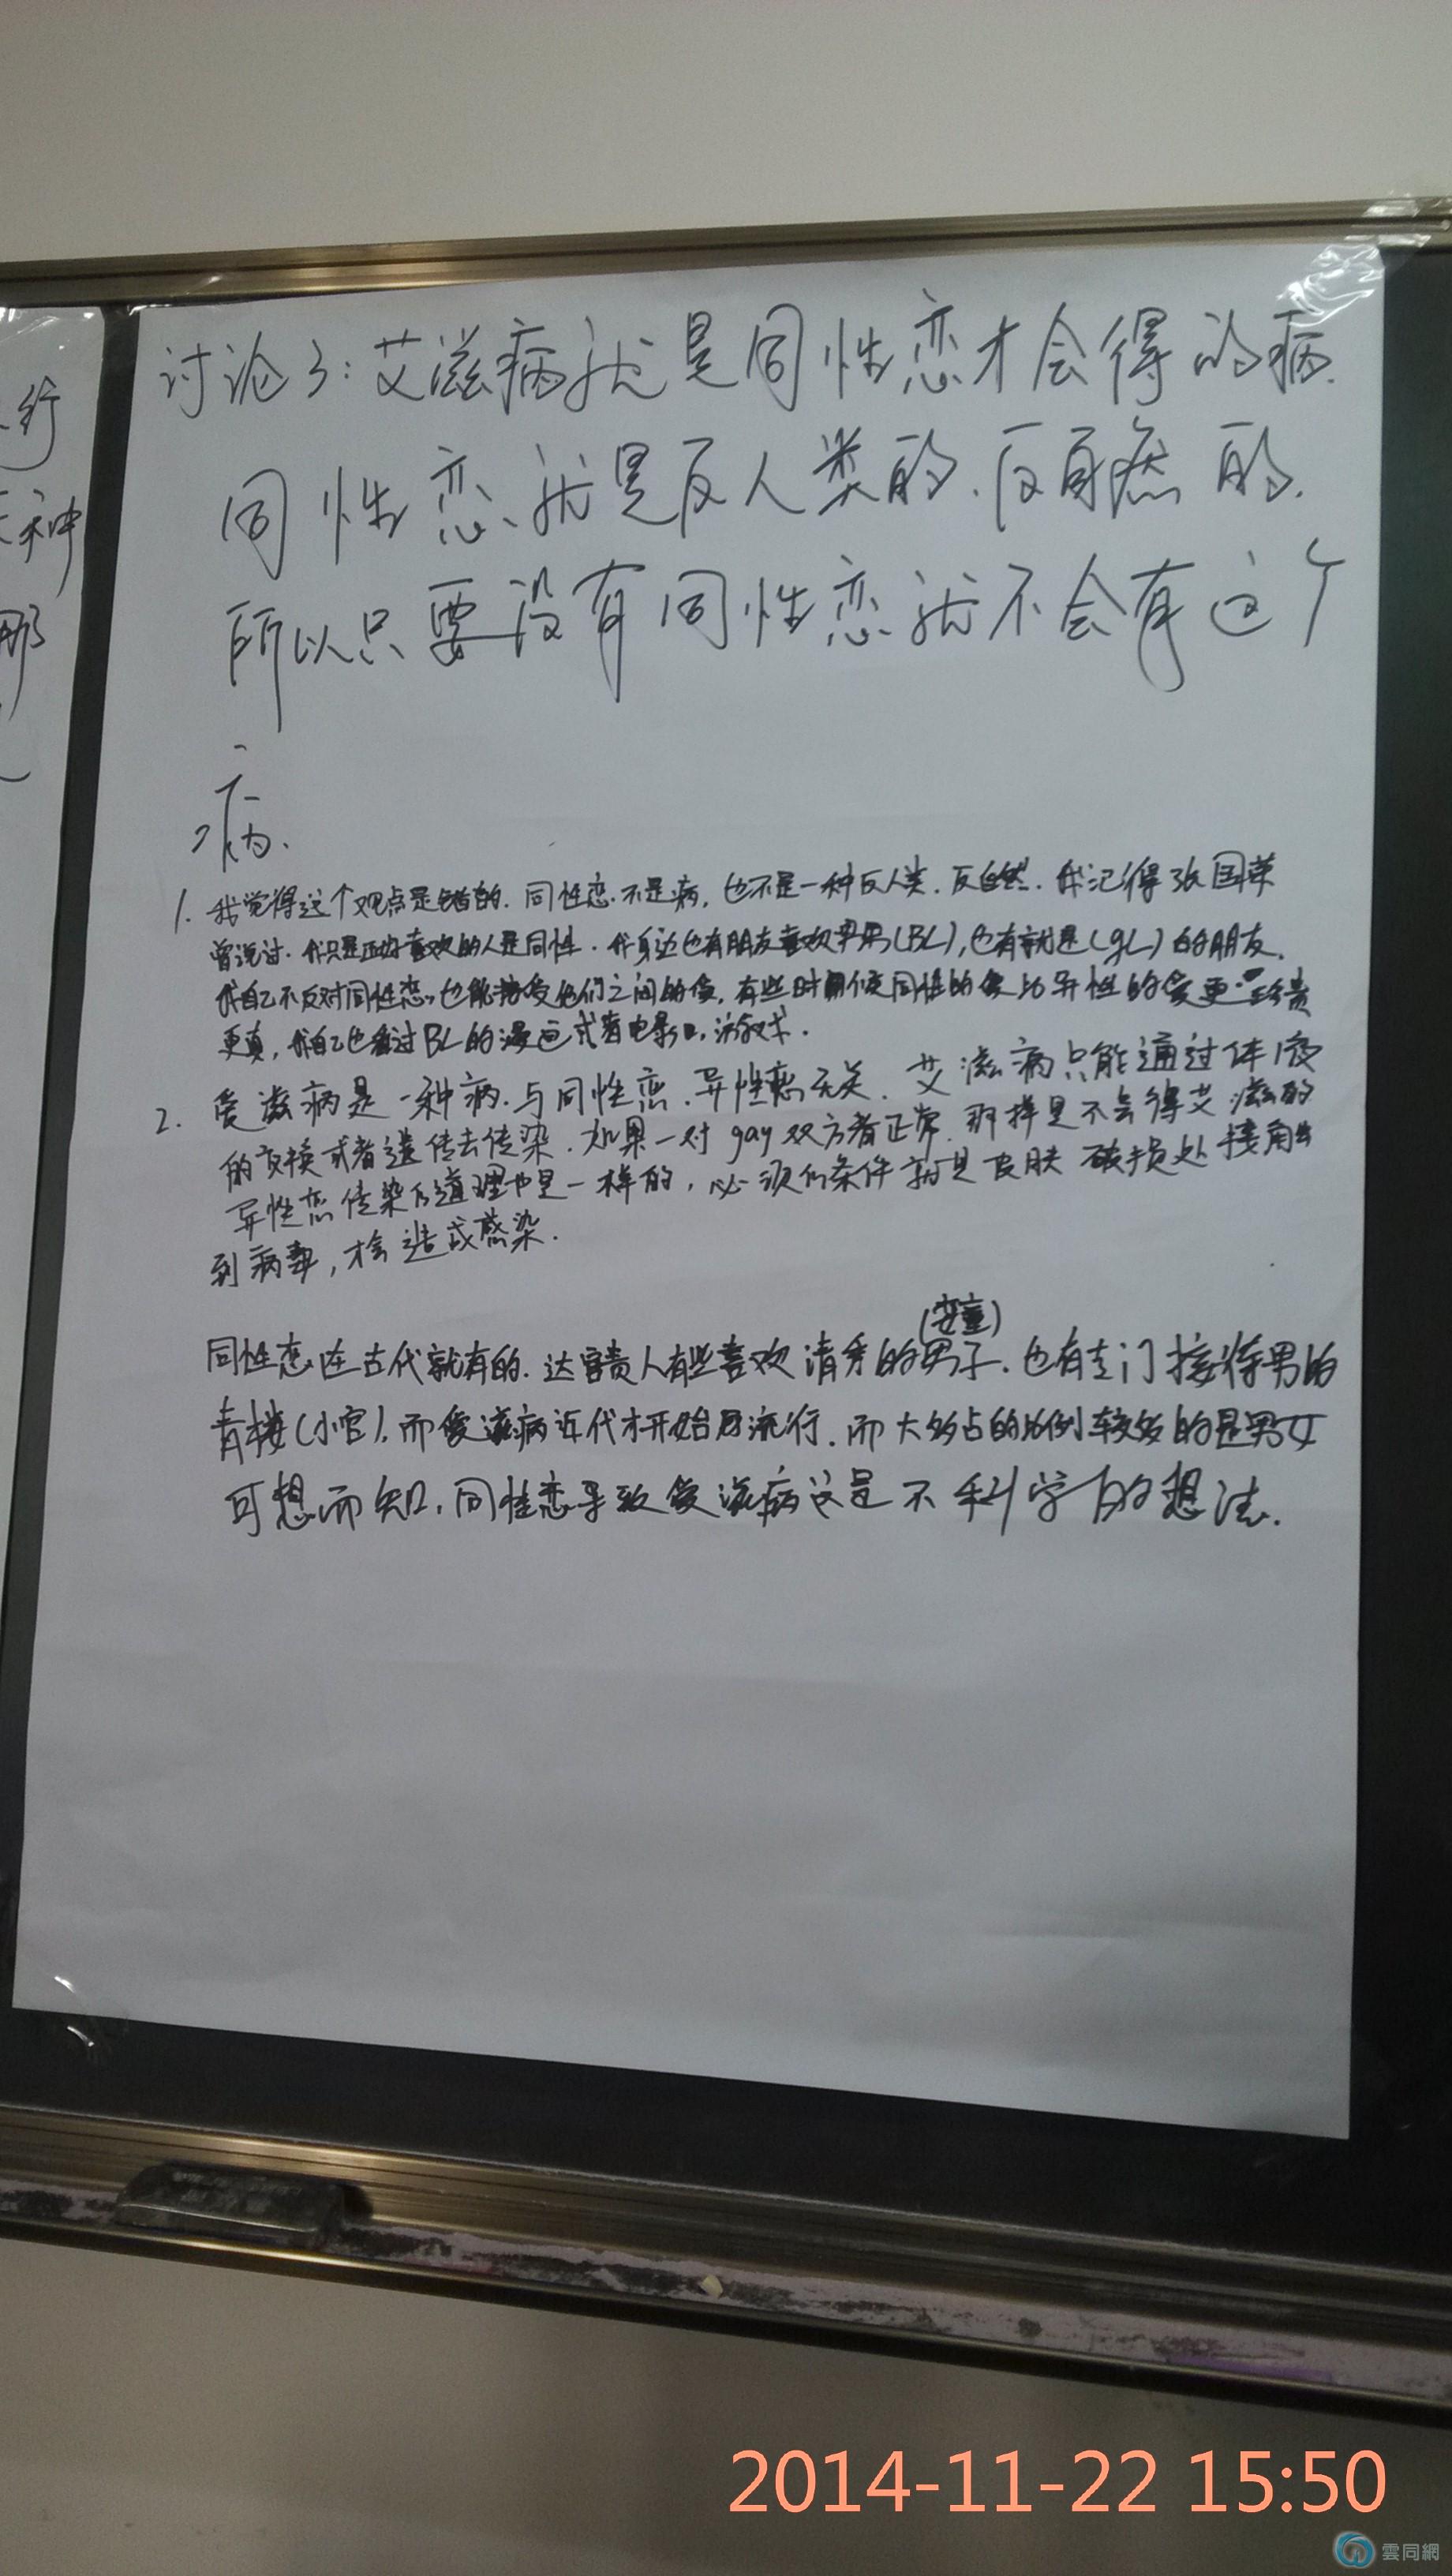 讨论3:艾滋病就是同性恋才会得的病.
同性恋就是反人类的、反自然的.
所以只要没有同性恋就不会有这个
病.
1. 我觉得这个观点是错的.同性恋不是病,也不是一种反人类.反自然.我记得张国荣
曾说过.我只是正好喜欢的人是同性.我身边也有朋友喜欢男男(BL),也有就是(gL)的朋友.
我自己不反对同性恋,也能接受他们之间的爱,有些时候同性的爱比异性的爱更珍贵
更真,我自己也看过BL的漫画或者电影
2. 爱滋病是一种病.与同性恋.异性恋无关.艾滋病只能通过体液
的交换或者遗传去传染.如果一对gay双方者正常.那样是不会得艾滋的
异性恋传染的道理也是一样的,必须的条件就是皮肤破损处接触
到病毒,才会造成感染.
(娈童)
同性恋在古代就有的.达官贵人有些喜欢清秀的男子.也有专门接待男的
青楼(小官),而爱滋病近代才开始流行.而大多占的比例较多的是男女
可想而知,同性恋导致爱滋病这是不科学的想法.
行
种
那
2014-11-22 15:50
雲同網